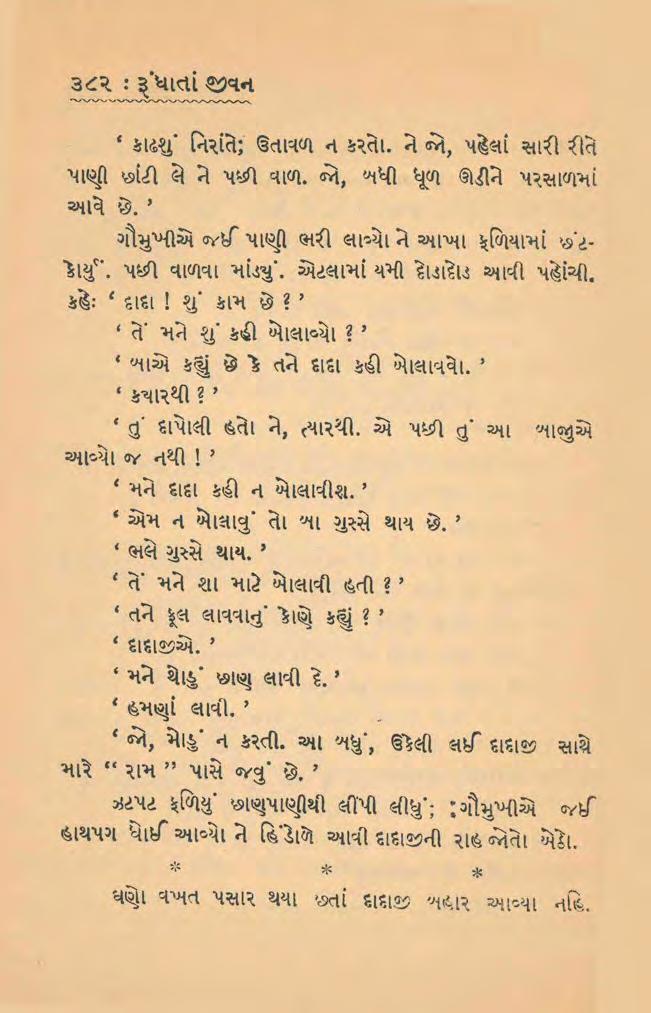 ૩૮૨ : રૂંધાતાં જીવન
‘ કાઢશું નિરાંતે; ઉતાવળ ન કરતો. ને જો, પહેલાં સારી રીતે
પાણી છાંટી લે ને પછી વાળ. જો, બધી ધૂળ ઊડીને પરસાળમાં
આવે છે. ’
ગૌમુખીએ જઈ પાણી ભરી લાવ્યો ને આખા ફળિયામાં છંટ-
કાર્યું. પછી વાળવા માંડ્યું. એટલામાં યમી દોડાદોડ આવી પહોંચી.
કહેઃ ‘ દાદા ! શું કામ છે ? ’
‘ તેં મને શું કહી બોલાવ્યો ? ’
‘ બાએ કહ્યું છે કે તને દાદા કહી બોલાવવો. ’
‘ કયારથી ? ’
‘ તું દાપોલી હતો ને, ત્યારથી. એ પછી તું આ બાજુએ
આવ્યો જ નથી ! ’
‘ મને દાદા કહી ન બોલાવીશ. ’
‘ એમ ન બોલાવું તો બા ગુસ્સે થાય છે. ’
‘ ભલે ગુસ્સે થાય. ’
‘ તેં મને શા માટે બોલાવી હતી ? ’
‘ તને ફૂલ લાવવાનું કોણે કહ્યું ? ’
‘ દાદાજીએ. ’
‘ મને થોડું છાણ લાવી દે. ’
‘ હમણાં લાવી. ’
‘ જો, મોડું ન કરતી. આ બધું, ઉકેલી લઈ દાદાજી સાથે
મારે “ રામ ” પાસે જવું છે. ’
ઝટપટ ફળિયું છાણપાણીથી લીંપી લીધું; :ગૌમુખીએ જઈ
હાથપગ ધોઈ આવ્યો ને હિંડોળે આવી દાદાજીની રાહ જોતો બેઠો.
* * *
ઘણો વખત પસાર થયા છતાં દાદાજી બહાર આવ્યા નહિ.